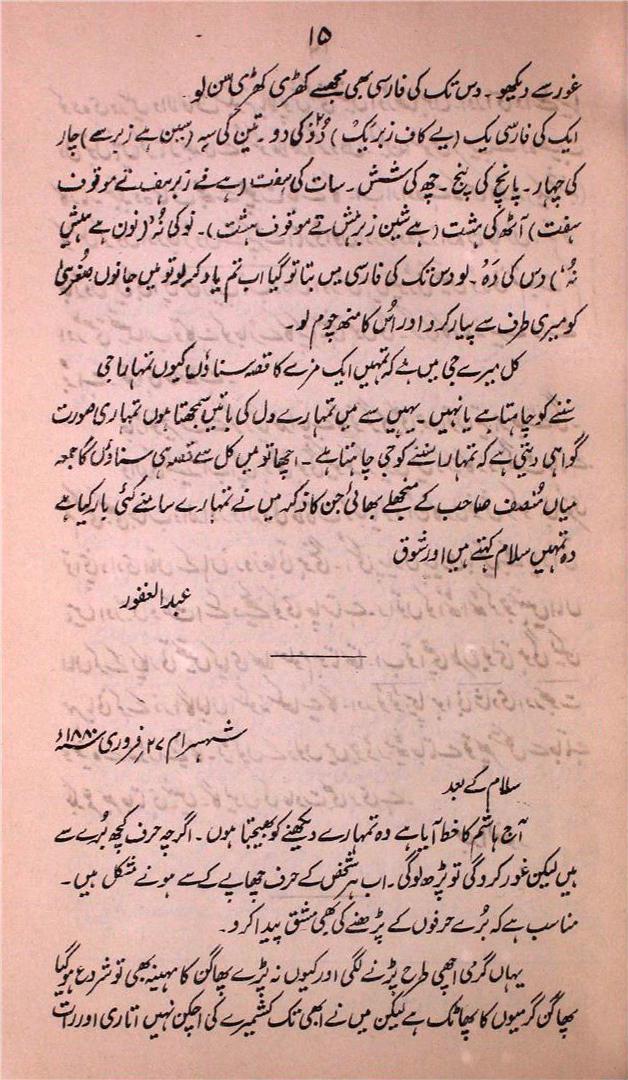 ۱۵
غور سے دیکھو۔ دس تک کی فارسی بھی مجھسے کھڑی کھڑی سن لو
ایک کی فارسی یک (یے کاف زبر یَک) دُوْ کی دو۔ تین کی سِہ (سین ہے زیر سے) چار
کی چہار۔ پانچ کی پنج۔ چھ کی شش۔ سات کی ہفت (ہے فے زبر ہف تے موقوف
ہفت) آٹھ کی ہشت (ہے شین زبر ہش تے موقوف ہشت)۔ نو کی نُہ (نون ہے پیش
نُہ) دس کی دَہ۔ لو دس تک کی فارسی میں بتا تو گیا اب تم یاد کر لو تو میں جانوں صُغریٰ
کو میری طرف سے پیار کرو اور اُس کا منھ چوم لو۔
کل میرے جی میں ہے کہ تمہیں ایک مزے کا قصہ سناؤں کیوں تمہارا جی
سننے کو چاہتا ہے یا نہیں۔ یہیں سے میں تمہارے دل کی باتیں سمجھتا ہوں تمہاری صورت
گواہی دیتی ہے کہ تمہارا سننے کو جی چاہتا ہے۔ اچھا تو میں کل سے قصہ ہی سناؤں گا جمعہ
میاں مُنصف صاحب کے منجھلے بھائی جن کا ذکر میں نے تمہارے سامنے کئی بار کیا ہے
وہ تمہیں سلام کہتے ہیں اور شوق
عبدالغفور
سہسرام ۲۷ فروری سنہ ۱۸۸۰ء
سلام کے بعد
آج ہاشم کا خط آیا ہے وہ تمہارے دیکھنے کو بھیجتا ہوں۔ اگرچہ حرف کچھ بُرے سے
ہیں لیکن غور کرو گی تو پڑھ لو گی۔ اب ہر شخص کے حرف چھاپے کے سے ہونے مشکل ہیں۔
مناسب ہے کہ بُرے حرفوں کے پڑھنے کی بھی مشق پیدا کرو۔
یہاں گرمی اچھی طرح پڑنے لگی اور کیوں نہ پڑے پھاگن کا مہینہ بھی تو شروع ہو گیا
پھاگن گرمیوں کا پھاٹک ہے لیکن میں نے ابھی تک کشمیرے کی اچکن نہیں اتاری اور رات